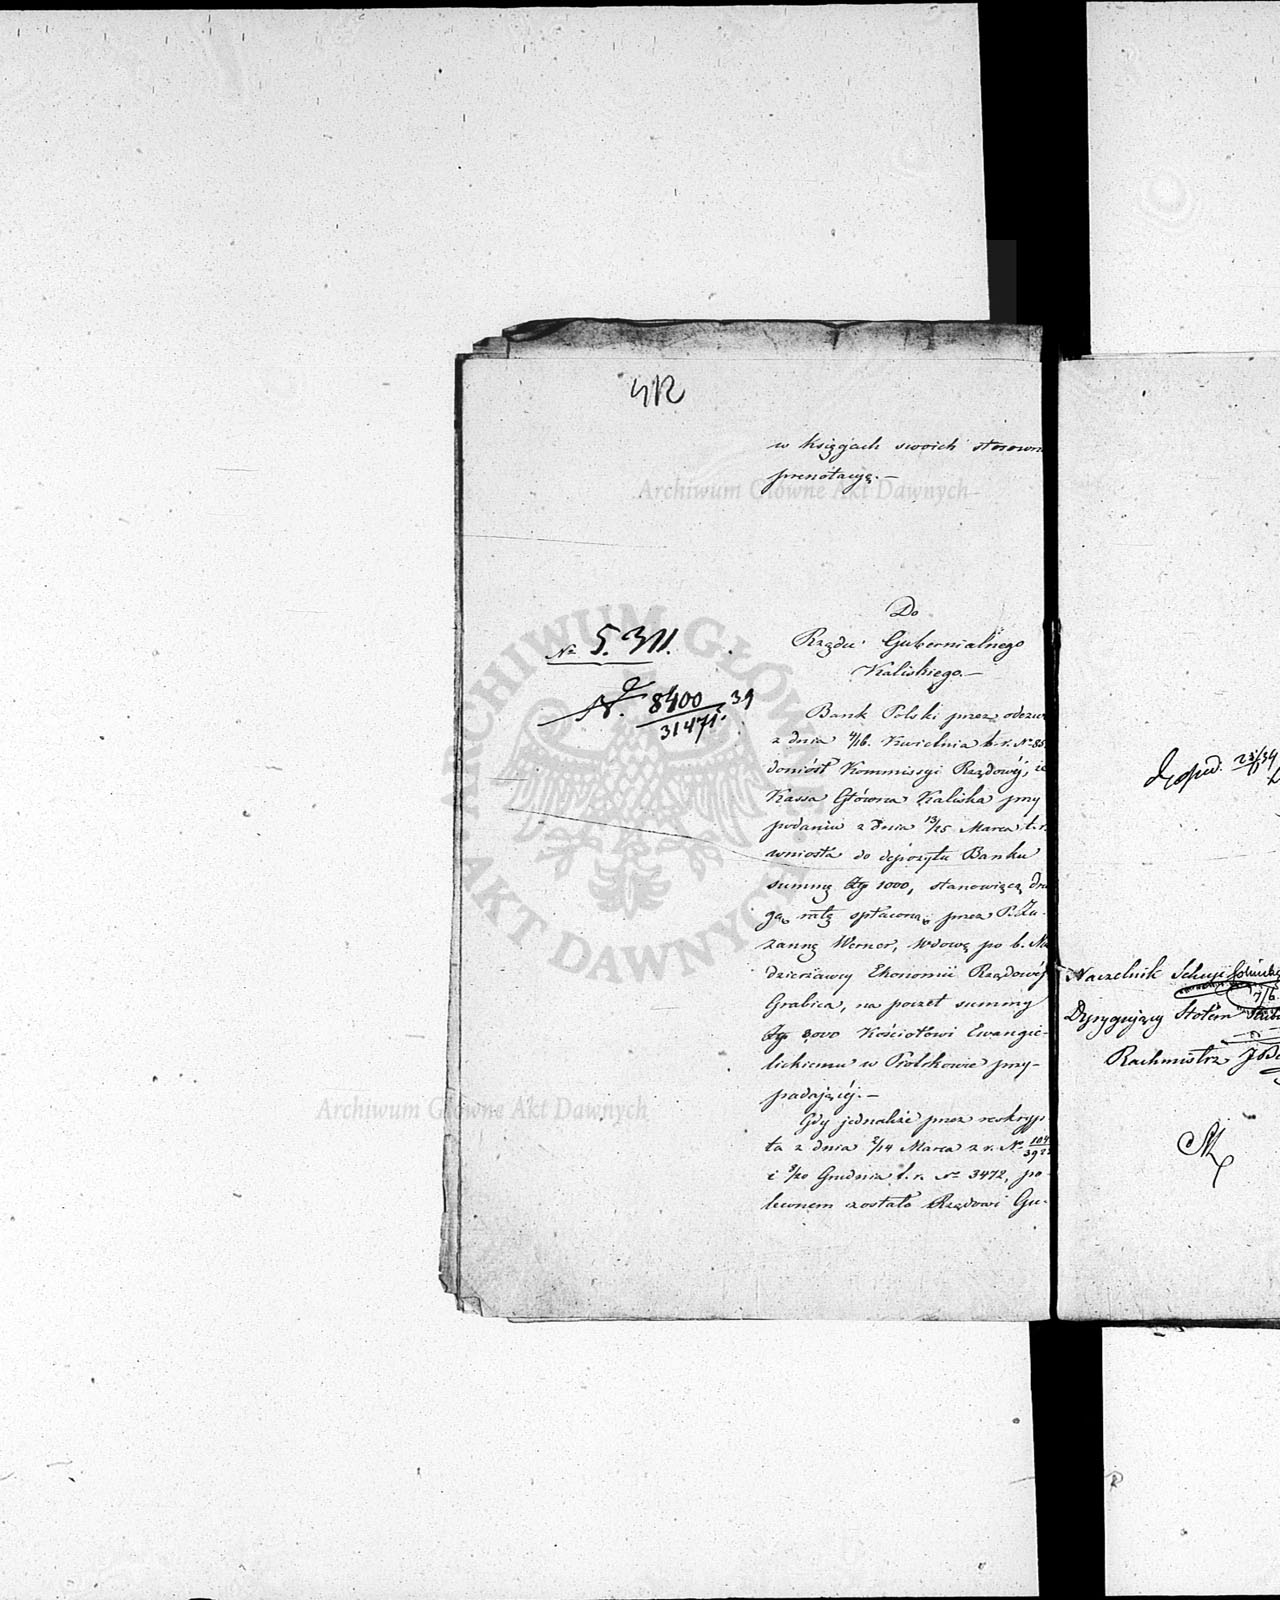 412
w księgach swoich stosown
prenotacyę.—
Archiwum Główne Akt Dawnych
Do
Rządu Gubernialnego
Kaliskiego.—
№ 5.311.
N. 8400 39
31471
Bank Polski przez odezw
z dnia 4/16. Kwietnia b. r. №
doniósł Kommissyi Rządowéj, że
Kassa Główna Kaliska przy
podaniu z dnia 13/25 Marca t. r.
wniosła do depozytu Banku
summę Złp 1000, stanowiącą dru
gą ratę spłaconą przez P. Zu-
zannę Werner, wdowę po b. Na
dzierżawcy Ekonomii Rządowéj
Grabica, na poczet summy
Złp 3,000 Kościołowi Ewangie-
lickiemu w Piotrkowie przy-
padającéj.—
Gdy jednakże przez reskryp
ta z dnia 2/14 Marca z. r. №
i 8/20 Grudnia t. r. № 3472, po-
leconem zostało Rządowi Gu-
ARCHIWUM GŁÓWNE AKT DAWNYCH
Archiwum Główne Akt Dawnych
Naczelnik Sekcyi
Dyrygujący Stołem
Rachmistrz